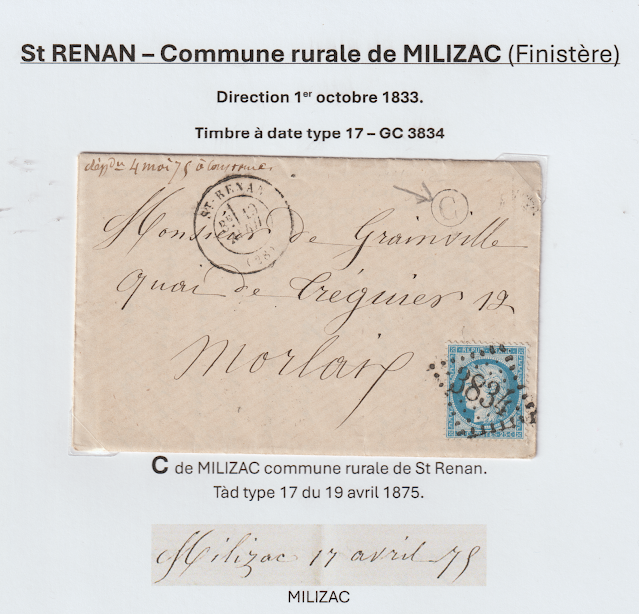 St RENAN – Commune rurale de MILIZAC (Finistère)
Direction 1er octobre 1833.
Timbre à date type 17 – GC 3834
4 mai 75
ST-RENAN
19
AVRIL
(28)
C
Monsieur de Grainville
quai de Tréguier 12
Morlaix
REPUB
3834
25
C de MILIZAC commune rurale de St Renan.
Tàd type 17 du 19 avril 1875.
Milizac 17 avril 75
MILIZAC